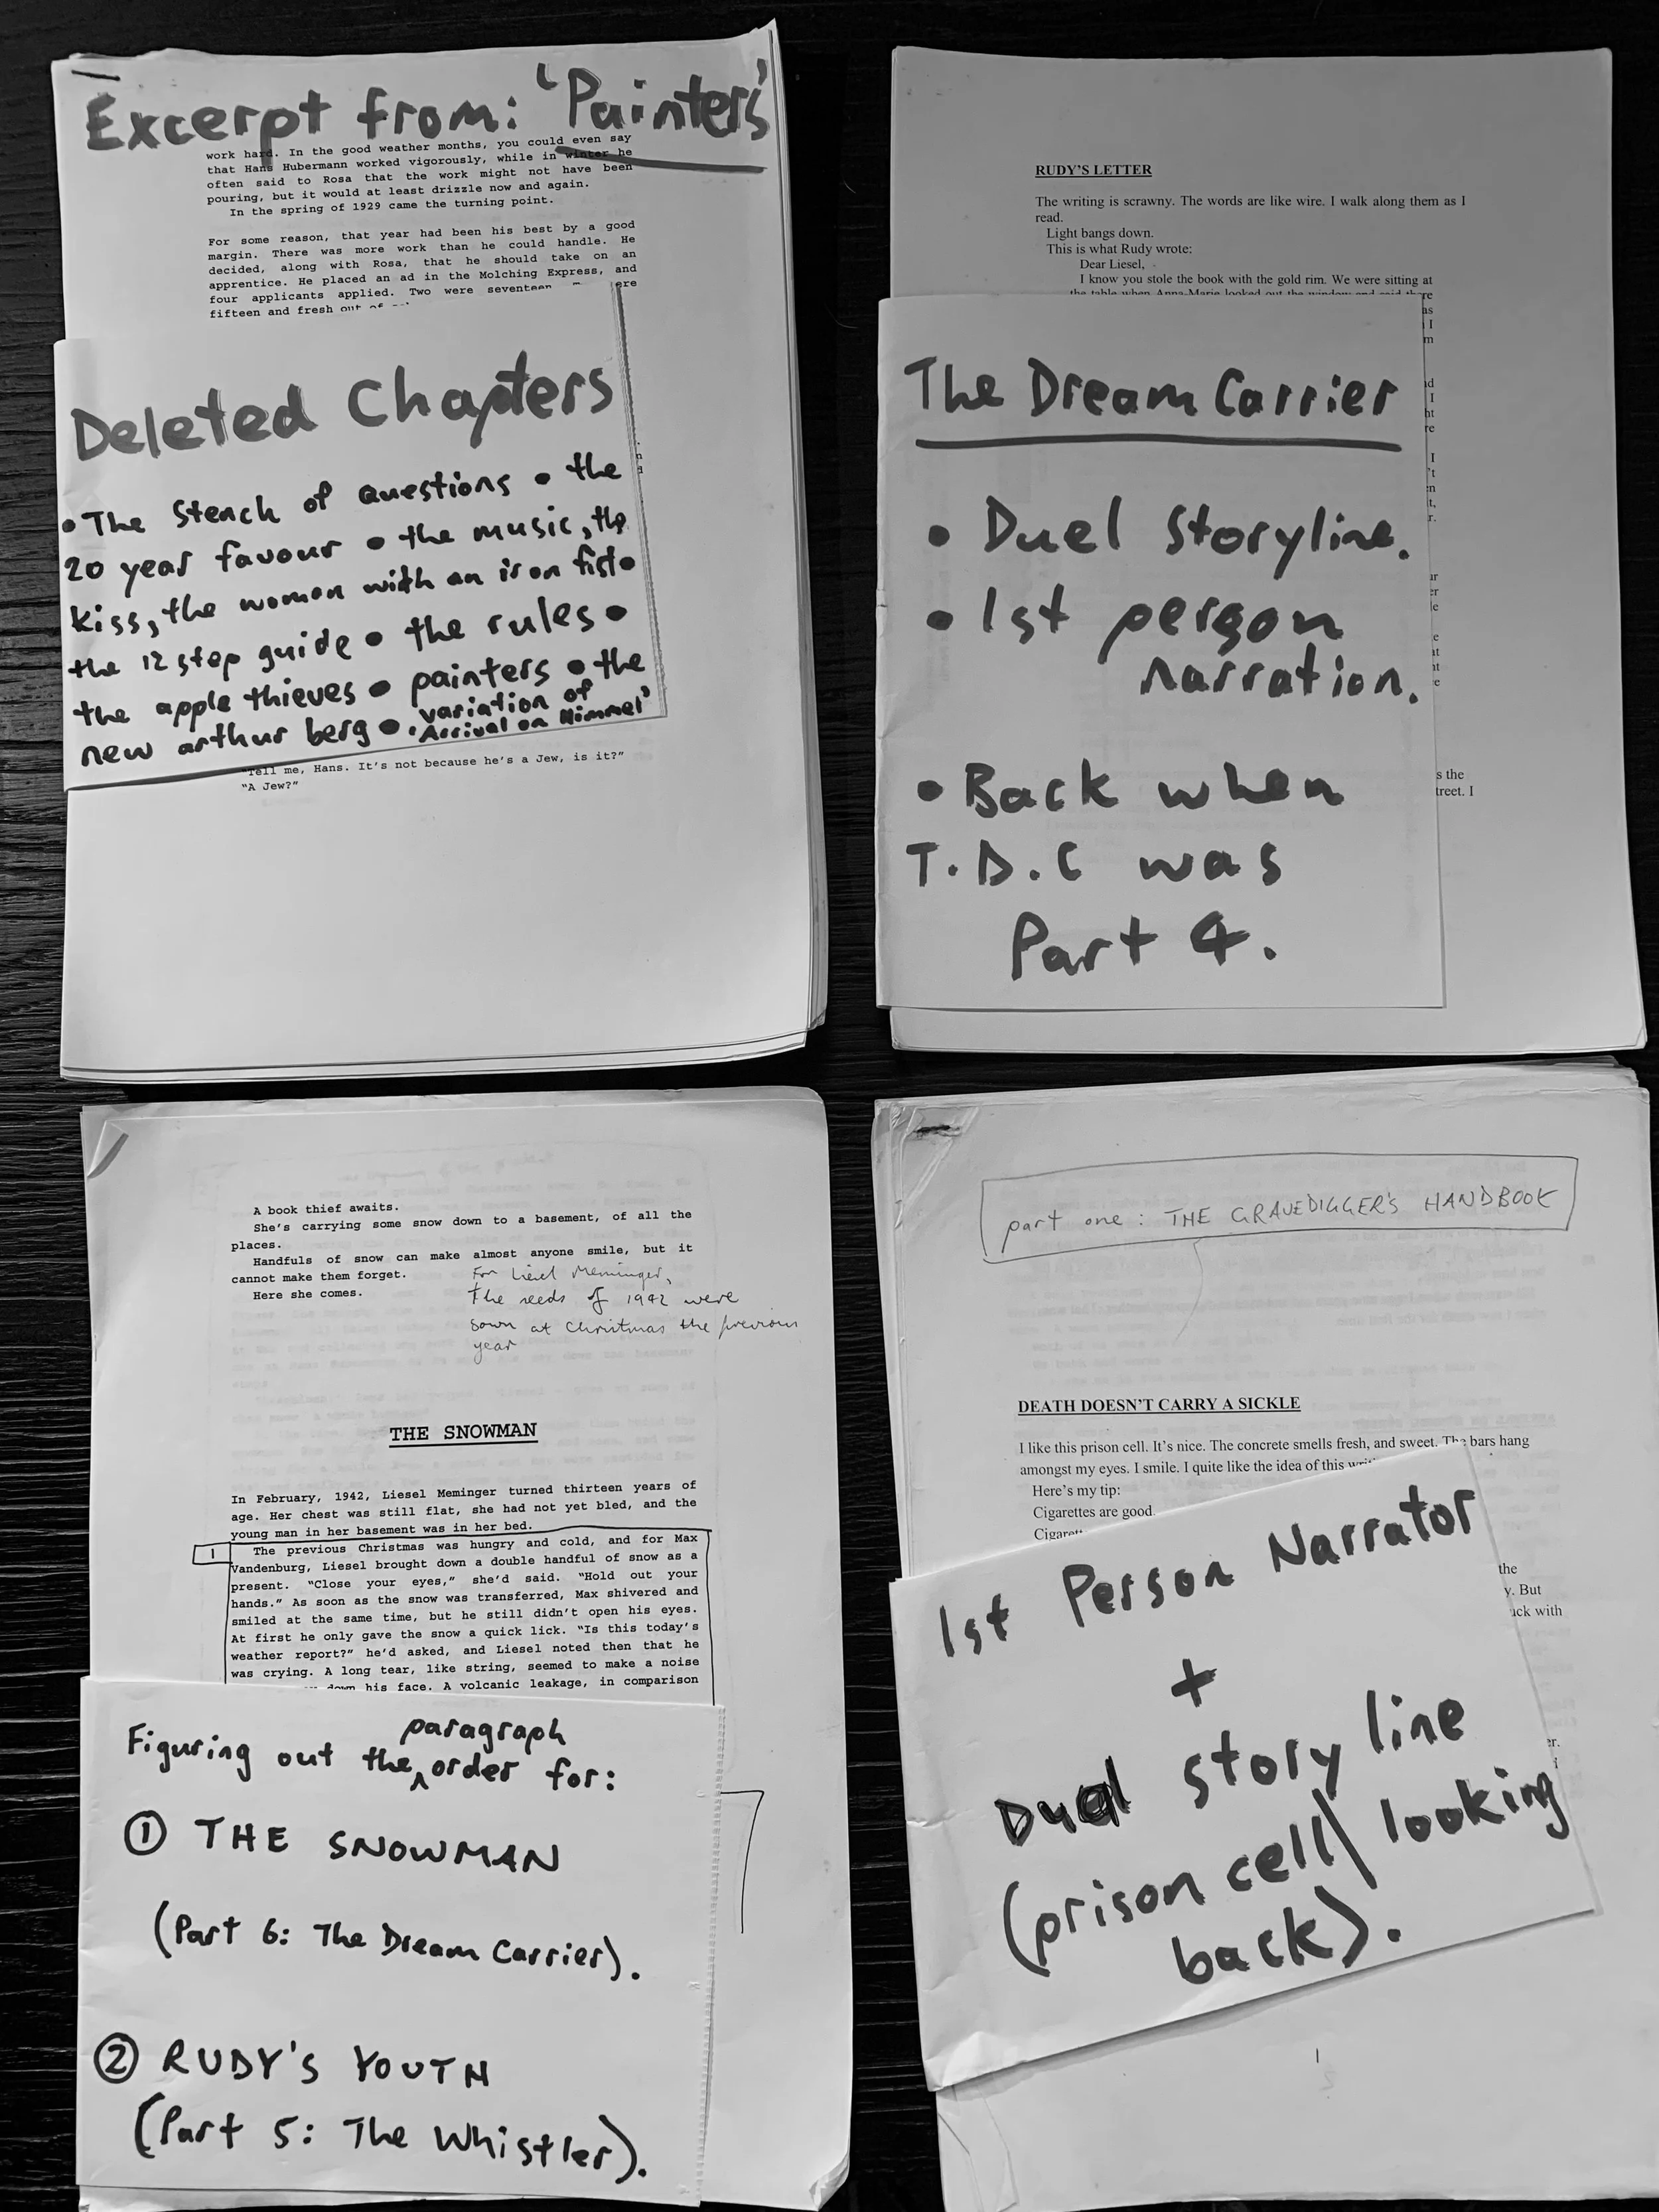 Excerpt from: 'Painters'
work hard. In the good weather months, you could even say
that Hans Hubermann worked vigorously, while in winter he
often said to Rosa that the work might not have been
pouring, but it would at least drizzle now and again.
In the spring of 1929 came the turning point.
For some reason, that year had been his best by a good
margin. There was more work than he could handle. He
decided, along with Rosa, that he should take on an
apprentice. He placed an ad in the Molching Express, and
four applicants applied. Two were seventeen
fifteen and fresh out of
Deleted Chapters
• The Stench of Questions • the
20 year favour • the music, the
kiss, the women with an iron fist •
the 12 step guide • the rules •
the apple thieves • painters • the
new arthur berg • . variation of
'Arrival on Himmel'
"Tell me, Hans. It's not because he's a Jew, is it?"
"A Jew?"
RUDY'S LETTER
The writing is scrawny. The words are like wire. I walk along them as I
read.
Light bangs down.
This is what Rudy wrote:
Dear Liesel,
I know you stole the book with the gold rim. We were sitting at
the table when Anna-Marie looked out the window and said there
The Dream Carrier
• Duel Storyline.
• 1st person
narration.
• Back when
T.D.C was
Part 4.
s the
treet. I
A book thief awaits.
She's carrying some snow down to a basement, of all the
places.
Handfuls of snow can make almost anyone smile, but it
cannot make them forget.
Here she comes.
For Liesel Meminger,
the seeds of 1942 were
sown at Christmas the previous
year
THE SNOWMAN
In February, 1942, Liesel Meminger turned thirteen years of
age. Her chest was still flat, she had not yet bled, and the
young man in her basement was in her bed.
1
The previous Christmas was hungry and cold, and for Max
Vandenburg, Liesel brought down a double handful of snow as a
present. "Close your eyes," she'd said. "Hold out your
hands." As soon as the snow was transferred, Max shivered and
smiled at the same time, but he still didn't open his eyes.
At first he only gave the snow a quick lick. "Is this today's
weather report?" he'd asked, and Liesel noted then that he
was crying. A long tear, like string, seemed to make a noise
down his face. A volcanic leakage, in comparison
Figuring out the paragraph order for:
① THE SNOWMAN
(Part 6: The Dream Carrier).
② RUDY'S YOUTH
(Part 5: The Whistler).
part one: THE GRAVEDIGGER'S HANDBOOK
DEATH DOESN'T CARRY A SICKLE
I like this prison cell. It's nice. The concrete smells fresh, and sweet. The bars hang
amongst my eyes. I smile. I quite like the idea of this
Here's my tip:
Cigarettes are good.
the
y. But
uck with
1st Person Narrator
+
Dual story line
(prison cell\ looking
back).
1